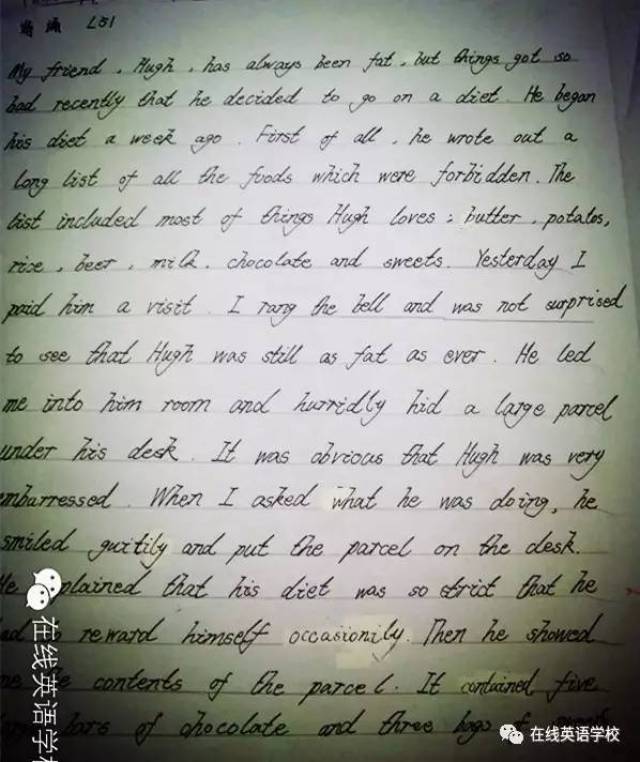 L51
My friend, Hugh, has always been fat, but things got so
bad recently that he decided to go on a diet. He began
his diet a week ago. First of all, he wrote out a
long list of all the foods which were forbidden. The
list included most of things Hugh loves: butter, potatos,
rice, beer, milk, chocolate and sweets. Yesterday I
paid him a visit. I rang the bell and was not surprised
to see that Hugh was still as fat as ever. He led
me into him room and hurridly hid a large parcel
under his desk. It was obvious that Hugh was very
embarressed. When I asked what he was doing, he
smiled guitily and put the parcel on the desk.
He explained that his diet was so strict that he
had to reward himself occasionily. Then he showed
me the contents of the parcel. It contained five
large bars of chocolate and three bags of
在线英语学校
在线英语学校